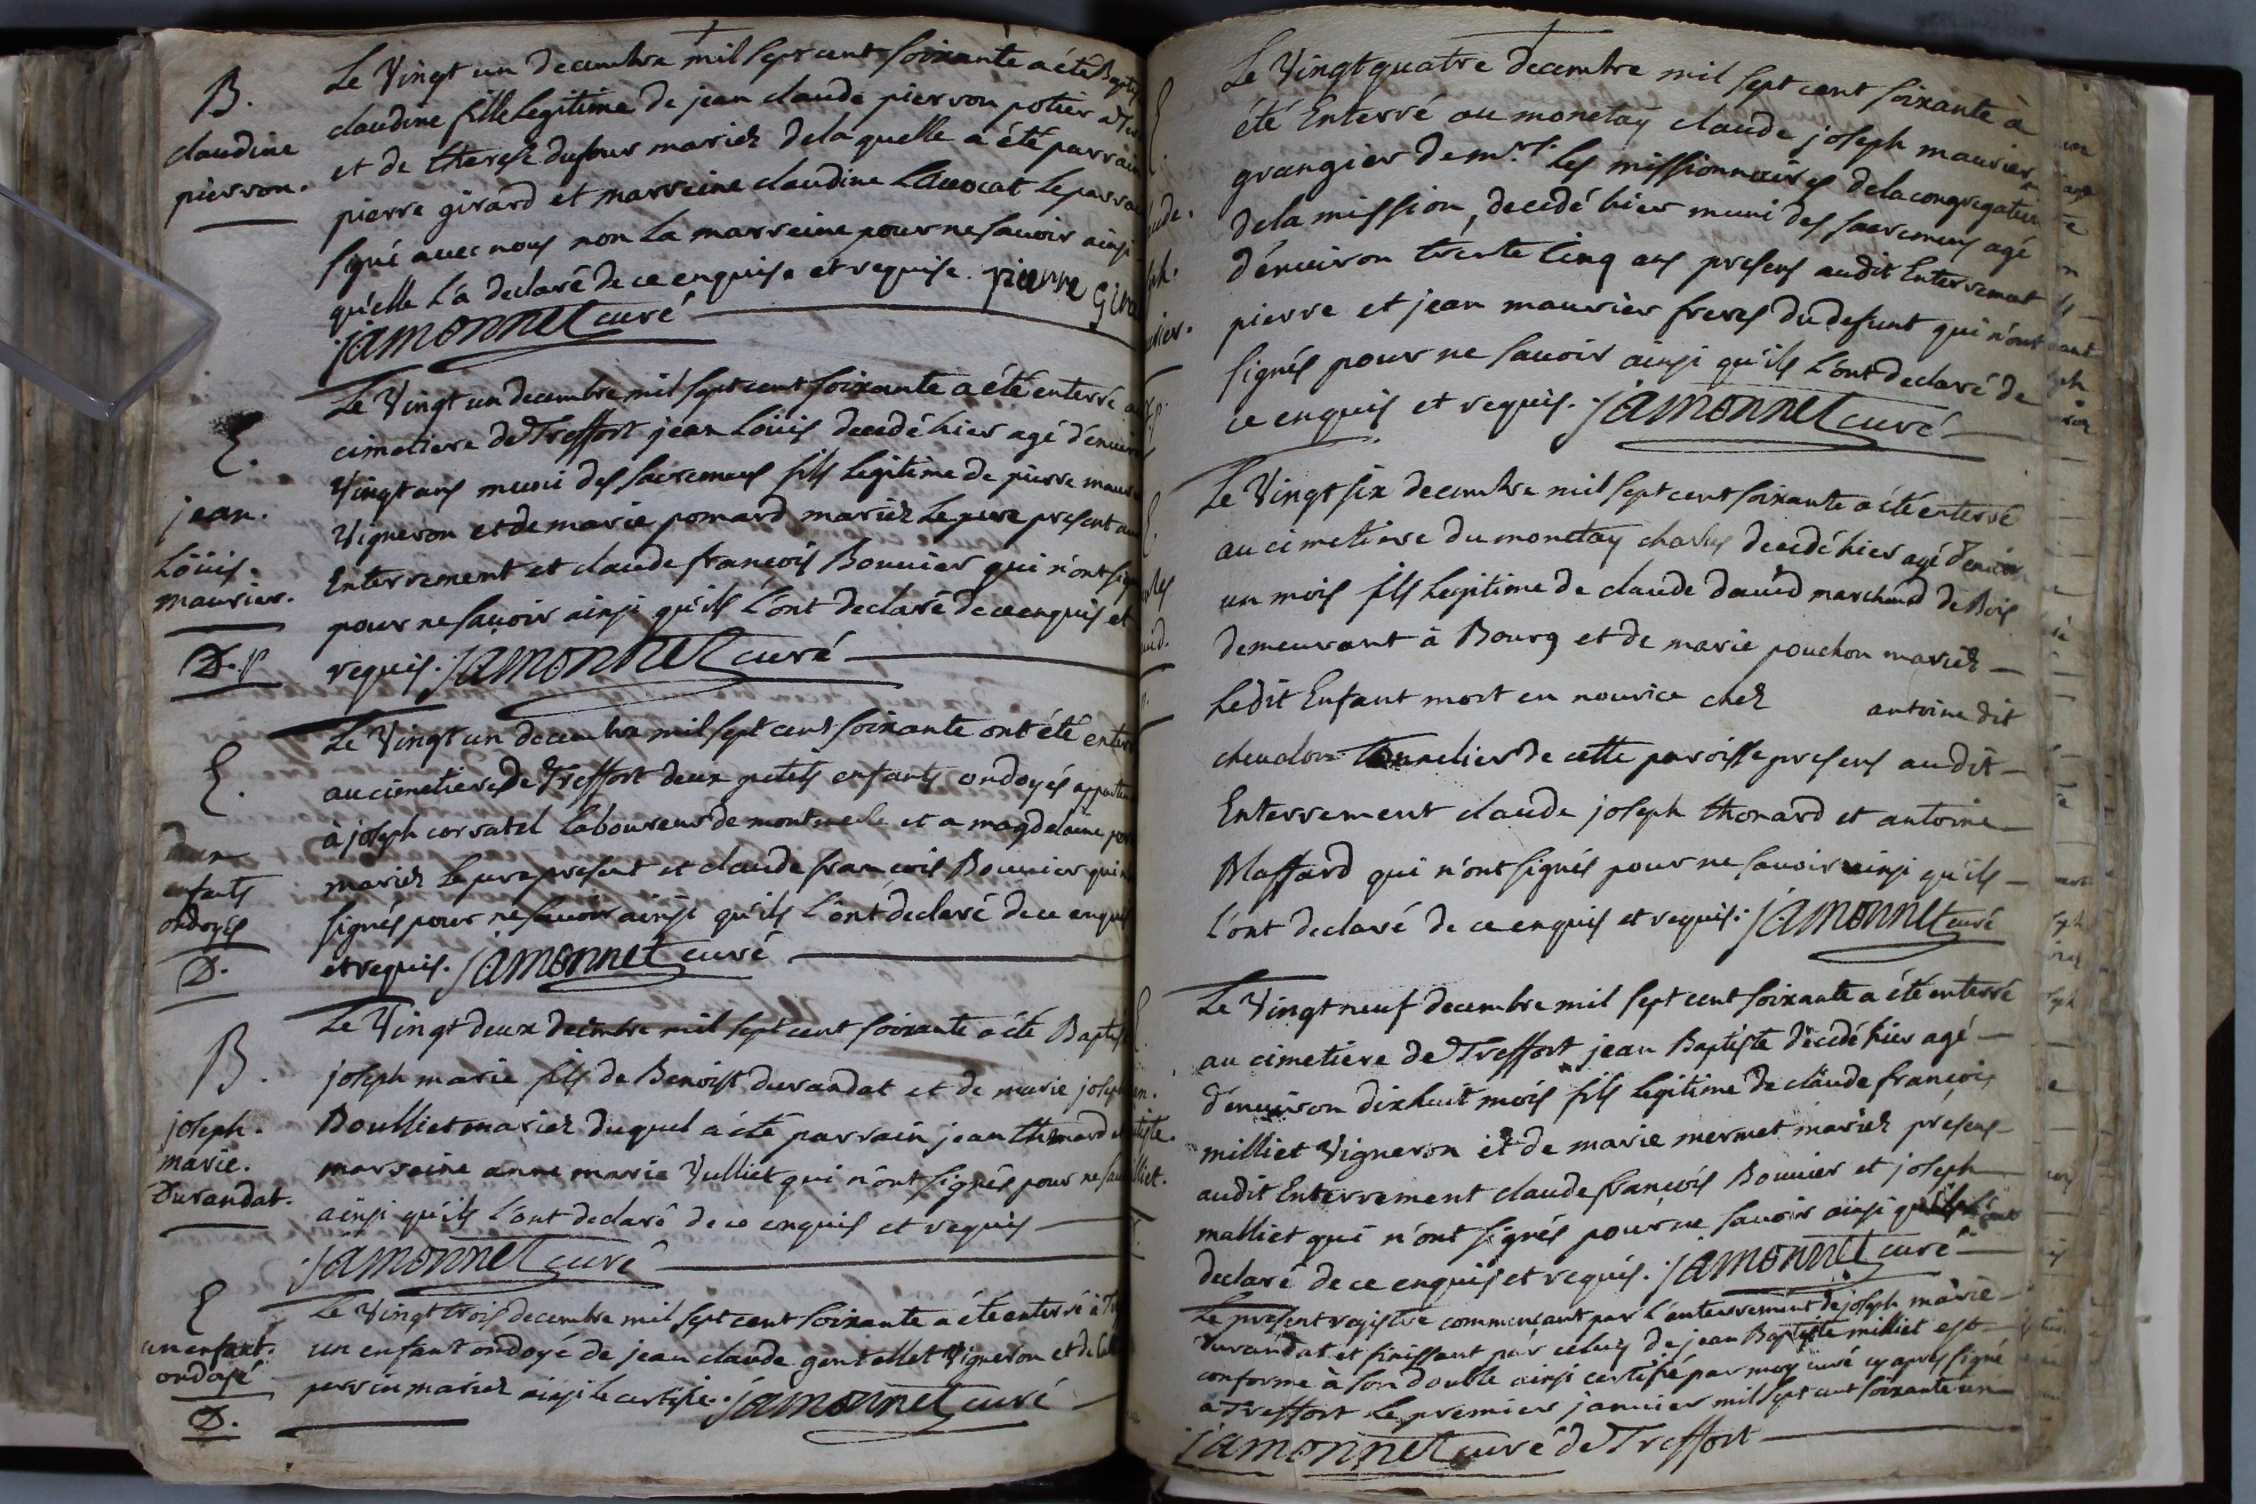 B.
claudine
pierron.
Le Vingt un decembre mil sept cent soixante a été
claudine fille legitime de jean claude pierron potier a
et de therese dufour mariez de laquelle a été parrain
pierre girard et marreine claudine Lavocat le
signé avec nous non la marreine pour ne savoir ainsi
qu'elle l'a declaré de ce enquise et requise. pierre
jamonnet curé
E.
jean.
Löüis.
maurier.
D. P
Le Vingt un decembre mil sept cent soixante a été enterré
cimetiere de Treffort jean Löüis decedé hier agé
Vingt ans muni des sacremens fils legitime de pierre
Vigneron et de marie pomard mariez le pere present
Enterrement et claude françois Bouvier qui n'ont
pour ne savoir ainsi qu'ils l'ont declaré de ce enquis et
requis. jamonnet curé
E.
deux
enfants
ondoyés
D.
Le Vingt un decembre mil sept cent soixante ont été
au cimetiere de Treffort deux petits enfants ondoyés
à joseph corsatel laboureur de et a magdelaine
mariez le pere present et claude françois Bouvier
signés pour ne savoir ainsi qu'ils l'ont declaré de ce
et requis. jamonnet curé
B.
joseph.
marie.
Durandat.
Le Vingt deux decembre mil sept cent soixante a été
joseph marie fils de Benoist durandat et de marie
Doulliet mariez duquel a été parrain jean thomard
marreine anne marie Vulliet qui n'ont signés pour ne
ainsi qu'ils l'ont declaré de ce enquis et requis
jamonnet curé
E
un enfant.
ondoyé
D.
Le Vingt trois decembre mil sept cent soixante a été enterré à
un enfant ondoyé de jean claude gentellet Vigneron et de
perrin mariez ainsi le certifie. jamonnet curé
Le Vingt quatre decembre mil sept cent soixante à
été Enterré au monetay claude joseph maurier
grangier de mrs. les missionnaires de la congregation
de la mission, decedé hier muni des sacremens agé
d'environ trente cinq ans presens audit Enterrement
pierre et jean maurier freres du defunt qui n'ont
signés pour ne savoir ainsi qu'ils l'ont declaré de
ce enquis et requis. jamonnet curé
Le Vingt six decembre mil sept cent soixante a été enterré
au cimetiere du monetay charles decedé hier agé d'environ
un mois fils legitime de claude david marchand de Bois
demeurant à Bourg et de marie pouchon mariez
Ledit Enfant mort en nourice chez antoine dit
chevalon tonnelier de cette paroisse presens audit
Enterrement claude joseph thonard et antoine
Maffard qui n'ont signés pour ne savoir ainsi qu'ils
l'ont declaré de ce enquis et requis. jamonnet curé
Le Vingt neuf decembre mil sept cent soixante a été enterré
au cimetiere de Treffort jean Baptiste decedé hier agé
d'environ dixhuit mois fils legitime de claude françois
milliet Vigneron et de marie mermet mariez presens
audit Enterrement claude françois Bouvier et joseph
malliet qui n'ont signés pour ne savoir ainsi qu'ils l'ont
declaré de ce enquis et requis. jamonnet curé
Le present registre commençant par l'enterrement de joseph marie
durandat et finissant par celuy de jean Baptiste milliet est
conforme à son double ainsi certifié par moy curé cy apres signé
a Treffort le premier janvier mil sept cent soixante un
jamonnet curé de Treffort